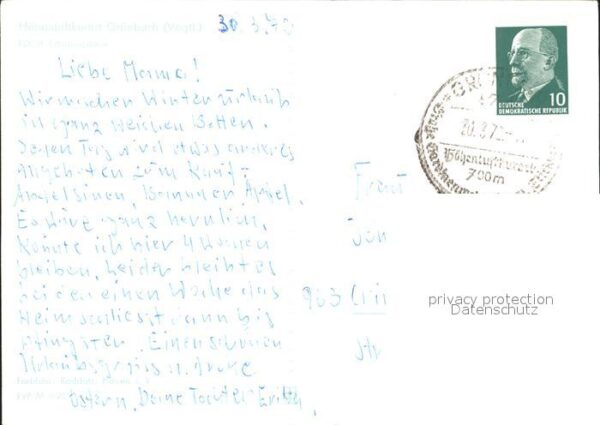 Höhenluftkurort Grünbach (Vogtl.)
30.3.72
Liebe Mama!
Wir machen Winterurlaub
in ganz weichen Betten.
Jeden Tag wird etwas anderes
angeboten zum Kauf:
Apfelsinen, Bananen Äpfel.
Es wäre ganz herrlich,
könnte ich hier 4 Wochen
bleiben, leider bleibt es
bei der einen Woche das
Heim schliesst dann bis
Pfingsten. Einen schönen
Urlaubsgruss u. frohe
Ostern. Deine Tochter
DEUTSCHE
DEMOKRATISCHE REPUBLIK
10
Höhenluftkurort
700m
Frau
963
privacy protection
Datenschutz